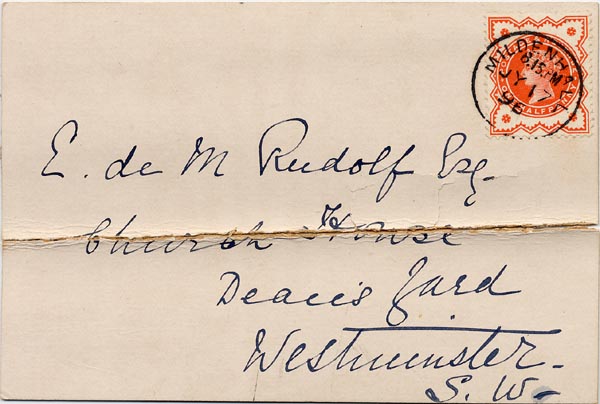 MILDENHALL
8.15PM
JY 17
96
HALFPENNY
E. de M Rudolf Esq.
Church House
Dean's Yard
Westminster.
S. W.